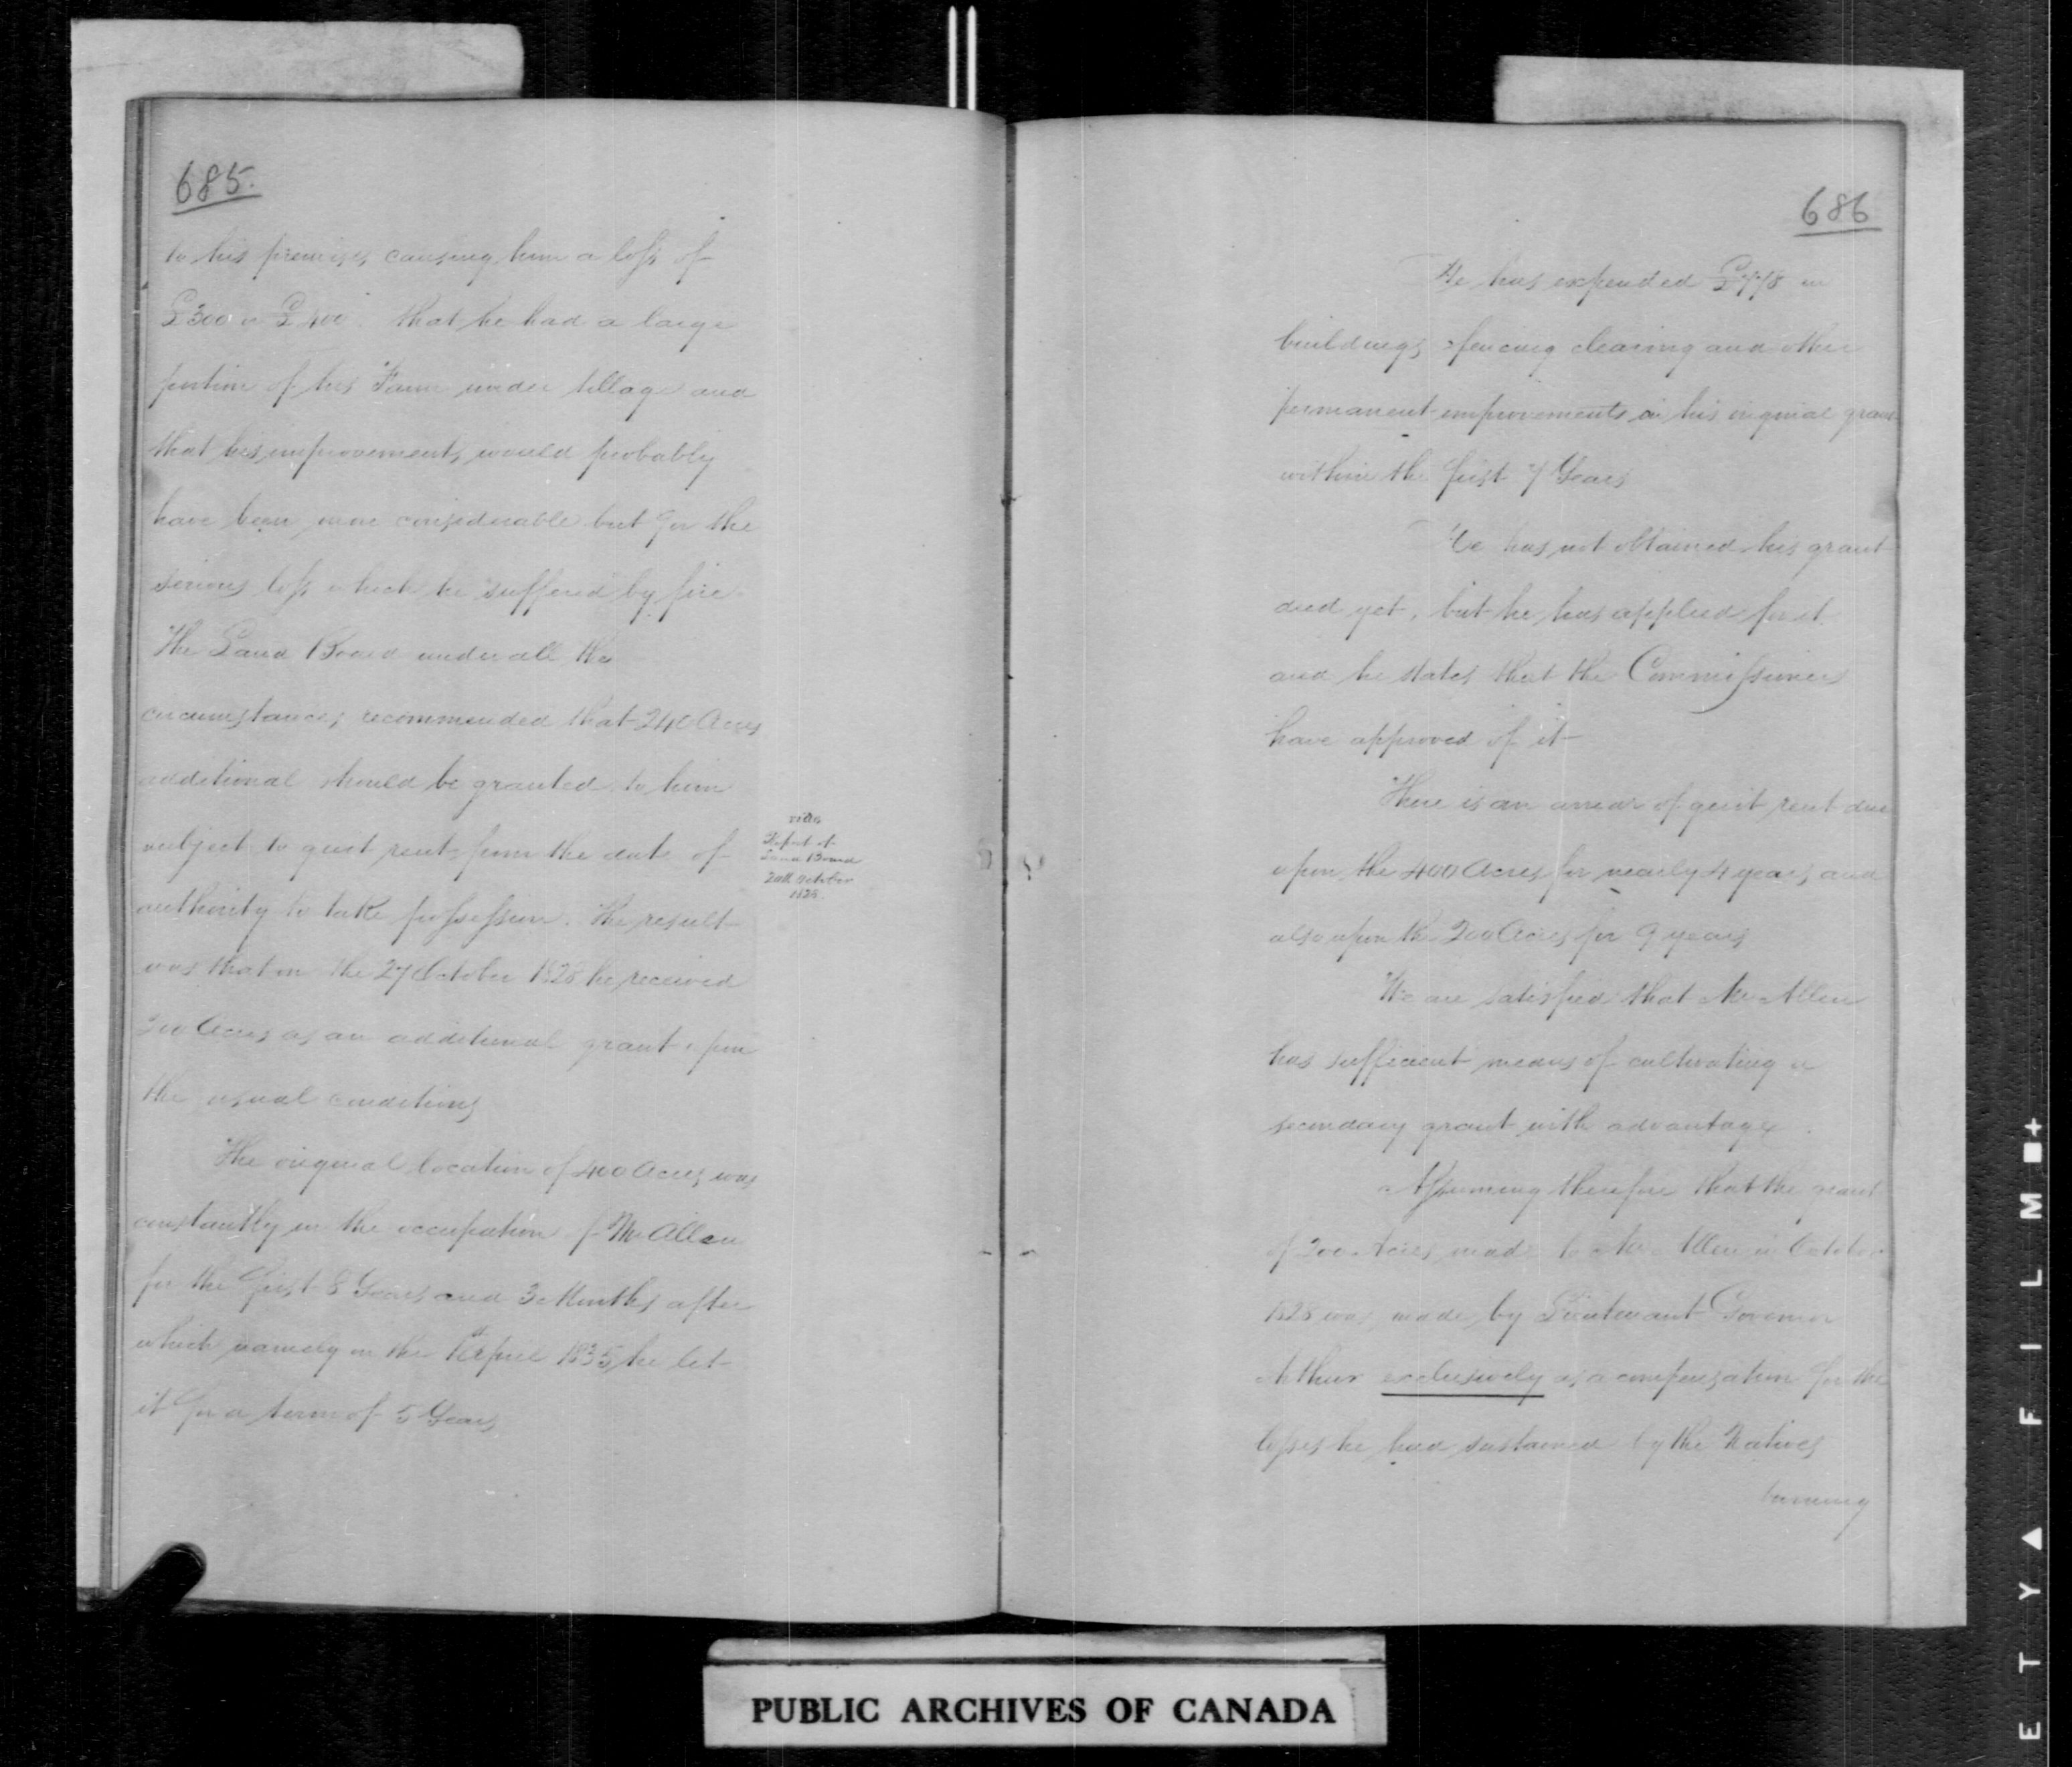 685.
to his premises causing him a loss of
£300 or £400. that he had a large
portion of his Farm under tillage and
that his improvements would probably
have been more considerable but for the
serious loss which he suffered by fire.
The Land Board under all the
circumstances recommended that 240 Acres
additional should be granted to him
subject to quit rent from the date of
authority to take possession. The result
was that on the 27 October 1828 he received
200 Acres as an additional grant upon
the usual conditions
The original location of 400 Acres was
constantly in the occupation of Mr Allen
for the first 8 Years and 3 Months after
which namely on the 1st April 1835 he let
it for a term of 5 Years
vide
Report of
Land Board
20th October
1828.
686
He has expended £778 in
buildings fencing clearing and other
permanent improvements on his original grant
within the first 7 Years
He has not obtained his grant
deed yet, but he has applied for it
and he states that the Commissioners
have approved of it
There is an arrear of quit rent due
upon the 400 Acres for nearly 4 years and
also upon the 200 Acres for 9 years
We are satisfied that Mr Allen
has sufficient means of cultivating a
secondary grant with advantage.
Assuming therefore that the grant
of 200 Acres made to Mr Allen in October
1828 was made by Lieutenant Governor
Arthur exclusively as a compensation for the
losses he had sustained by the Natives
burning
PUBLIC ARCHIVES OF CANADA
E T Y ▲ F I L M ■+